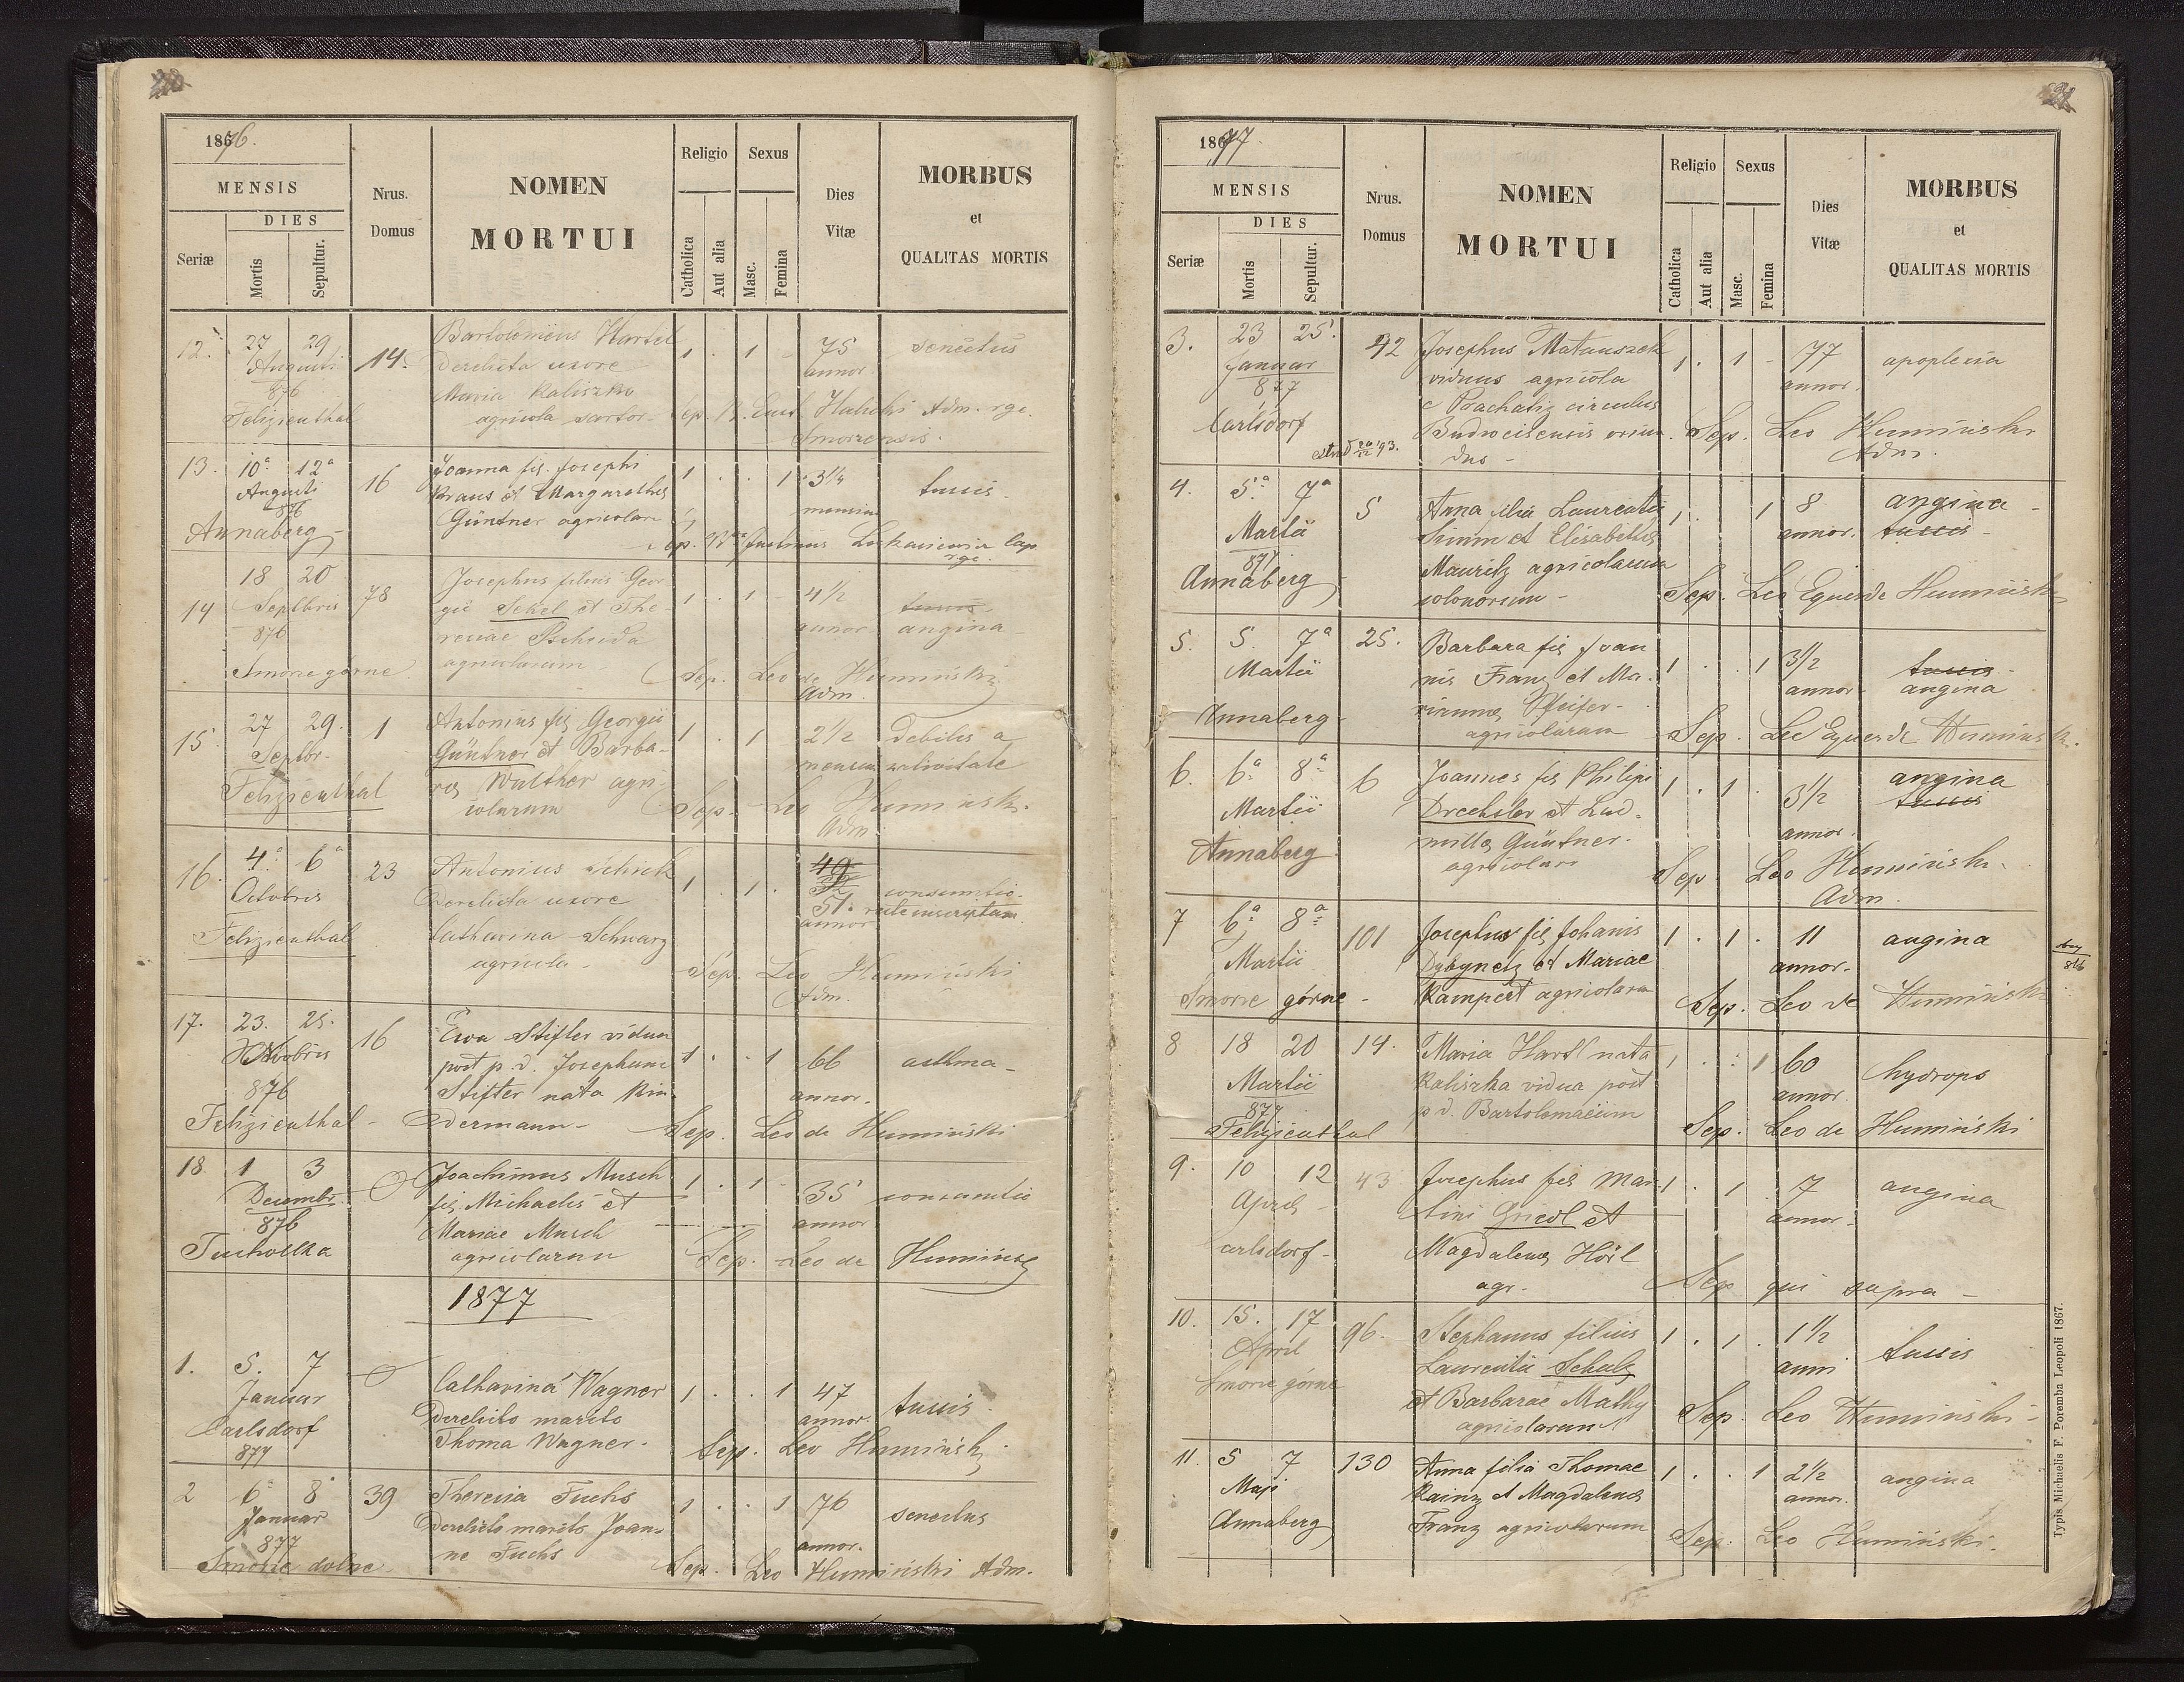 1876.
MENSIS
DIES
Seriæ
Mortis
Sepultur.
Nrus.
Domus
NOMEN
MORTUI
Religio
Catholica
Aut alia
Sexus
Masc.
Femina
Dies
Vitæ
MORBUS
et
QUALITAS MORTIS
12. 27 29 14. Bartolomeus Hartel 1 . 1 - 75 senectus
Augusti derelicta uxore annor
876 Maria Kaliszka
Felizienthal agricola sartor - Sep. Adm. rge.
Smorzensis.
13. 10a 12a 16 Joanna fil. Josephi 1 . . 1 3 1/4 tussis -
Augusti Kraus et Margarethae mensium
876 Güntner agricolar
Annaberg -
18 20
14 Septbris 78 Josephus filius Geor- 1 . 1 - 4 1/2 tussis
876 gii Sekel et The- annor. angina -
resiae
Smorze górne agricolarum Sep. Leo de Humiński
Adm.
15 27 29. 1 Antonius fil Georgii 1 . 1 2 1/2 Debilis a
Septbr. Güntner et Barba- mensium nativitate
Felizienthal rae Walther agri-
colarum Sep. Leo Humiński.
Adm.
16. 4a 6a 23 Antonius Schick 1 . 1 . 49
Octobris derelicta uxore 52 consumtio.
51. recte inscriptum.
annor
Felizienthal Catharina Schwarz
agricola - Sep. Leo Humiński
Adm.
17. 23. 25. 16 Ewa Stifter vidua 1 . . 1 66 asthma -
876 post p. d. Josephum annor.
Stifter nata Kin-
Felizienthal - dermann - Sep. Leo de Humiński
18 1 3 Joachimus Musch 1 . 1 - 35 consumtio
Decembr. fil Michaelis et annor
876 Mariae Musch
Tucholka agricolarum Sep. Leo de Humiński
1877
1. 5. 7 Catharina Wagner 1 . . 1 47 tussis.
Januar derelicto marito annor.
Carlsdorf Thoma Wagner. Sep. Leo Humiński.
877
2 6a 8a 39 Theresia Fuchs 1 . . 1 76 senectus
Januar derelicto marito Joan- annor.
877 ne Fuchs
Smorze dolne Sep. Leo Humiński Adm.
1877.
MENSIS
DIES
Seriæ
Mortis
Sepultur.
Nrus.
Domus
NOMEN
MORTUI
Religio
Catholica
Aut alia
Sexus
Masc.
Femina
Dies
Vitæ
MORBUS
et
QUALITAS MORTIS
3. 23 25. 42 Josephus Matauszek 1 . 1 - 77 apoplexia
Januar viduus agricola annor.
877 e Prachatiz circulus
Carlsdorf Budvicisensis oriun- Sep. Leo Humiński
dus - Adm.
4. 5a 7a 5 Anna filia Laurentii 1 . 1 8 angina -
Martii et Elisabethae annor. tussis -
877 Mauritz agricolarum
Annaberg colonorum - Sep. Leo Eques de Humiński
5. 5. 7a 25. Barbara fil Joan 1 . . 1 3 1/2 tussis -
Martii nis Franz et Ma- annor. angina
rianna Pfeifer -
Annaberg - agricolarum Sep. Leo Eques de Humiński.
6. 6a 8a 6 Joannes fil Philipi 1 . 1 . 3 1/2 angina
Martii Drechsler et Lud- annor. tussis
Annaberg milla Güntner.
agricolar Sep. Leo Humiński
Adm.
7 6a 8a 101 Josephus fil Johanis 1 . 1 . 11 angina
Martii Dybynetz et Mariae annor.
Smorze górne - Kampert agricolarum Sep. Leo de Humiński
8 18 20 14. Maria Hartl nata 1 . . 1 60 hydrops
Martii Kaliszka vidua post annor.
877 p d. Bartolomaeum
Felizienthal Sep. Leo de Humiński
9. 10 12 43 Josephus fil Mar- 1 . 1 . 7 angina
April tini Griedl et annor.
Carlsdorf - Magdalena Hösl
agr. Sep qui supra -
10. 15. 17 96. Stephanus filius 1 . 1 . 1 1/2 tussis
April Laurentii Schulz anni
Smorze górne et Barbarae Mathy
agricolarum Sep. Leo Humiński -
11. 5 7 130 Anna filia Thomae 1 . . 1 2 1/2 angina
Maji Kainz et Magdalena annor.
Annaberg Franz agricolarum Sep. Leo Humiński.
Typis Michaelis F. Poremba Leopoli 1867.